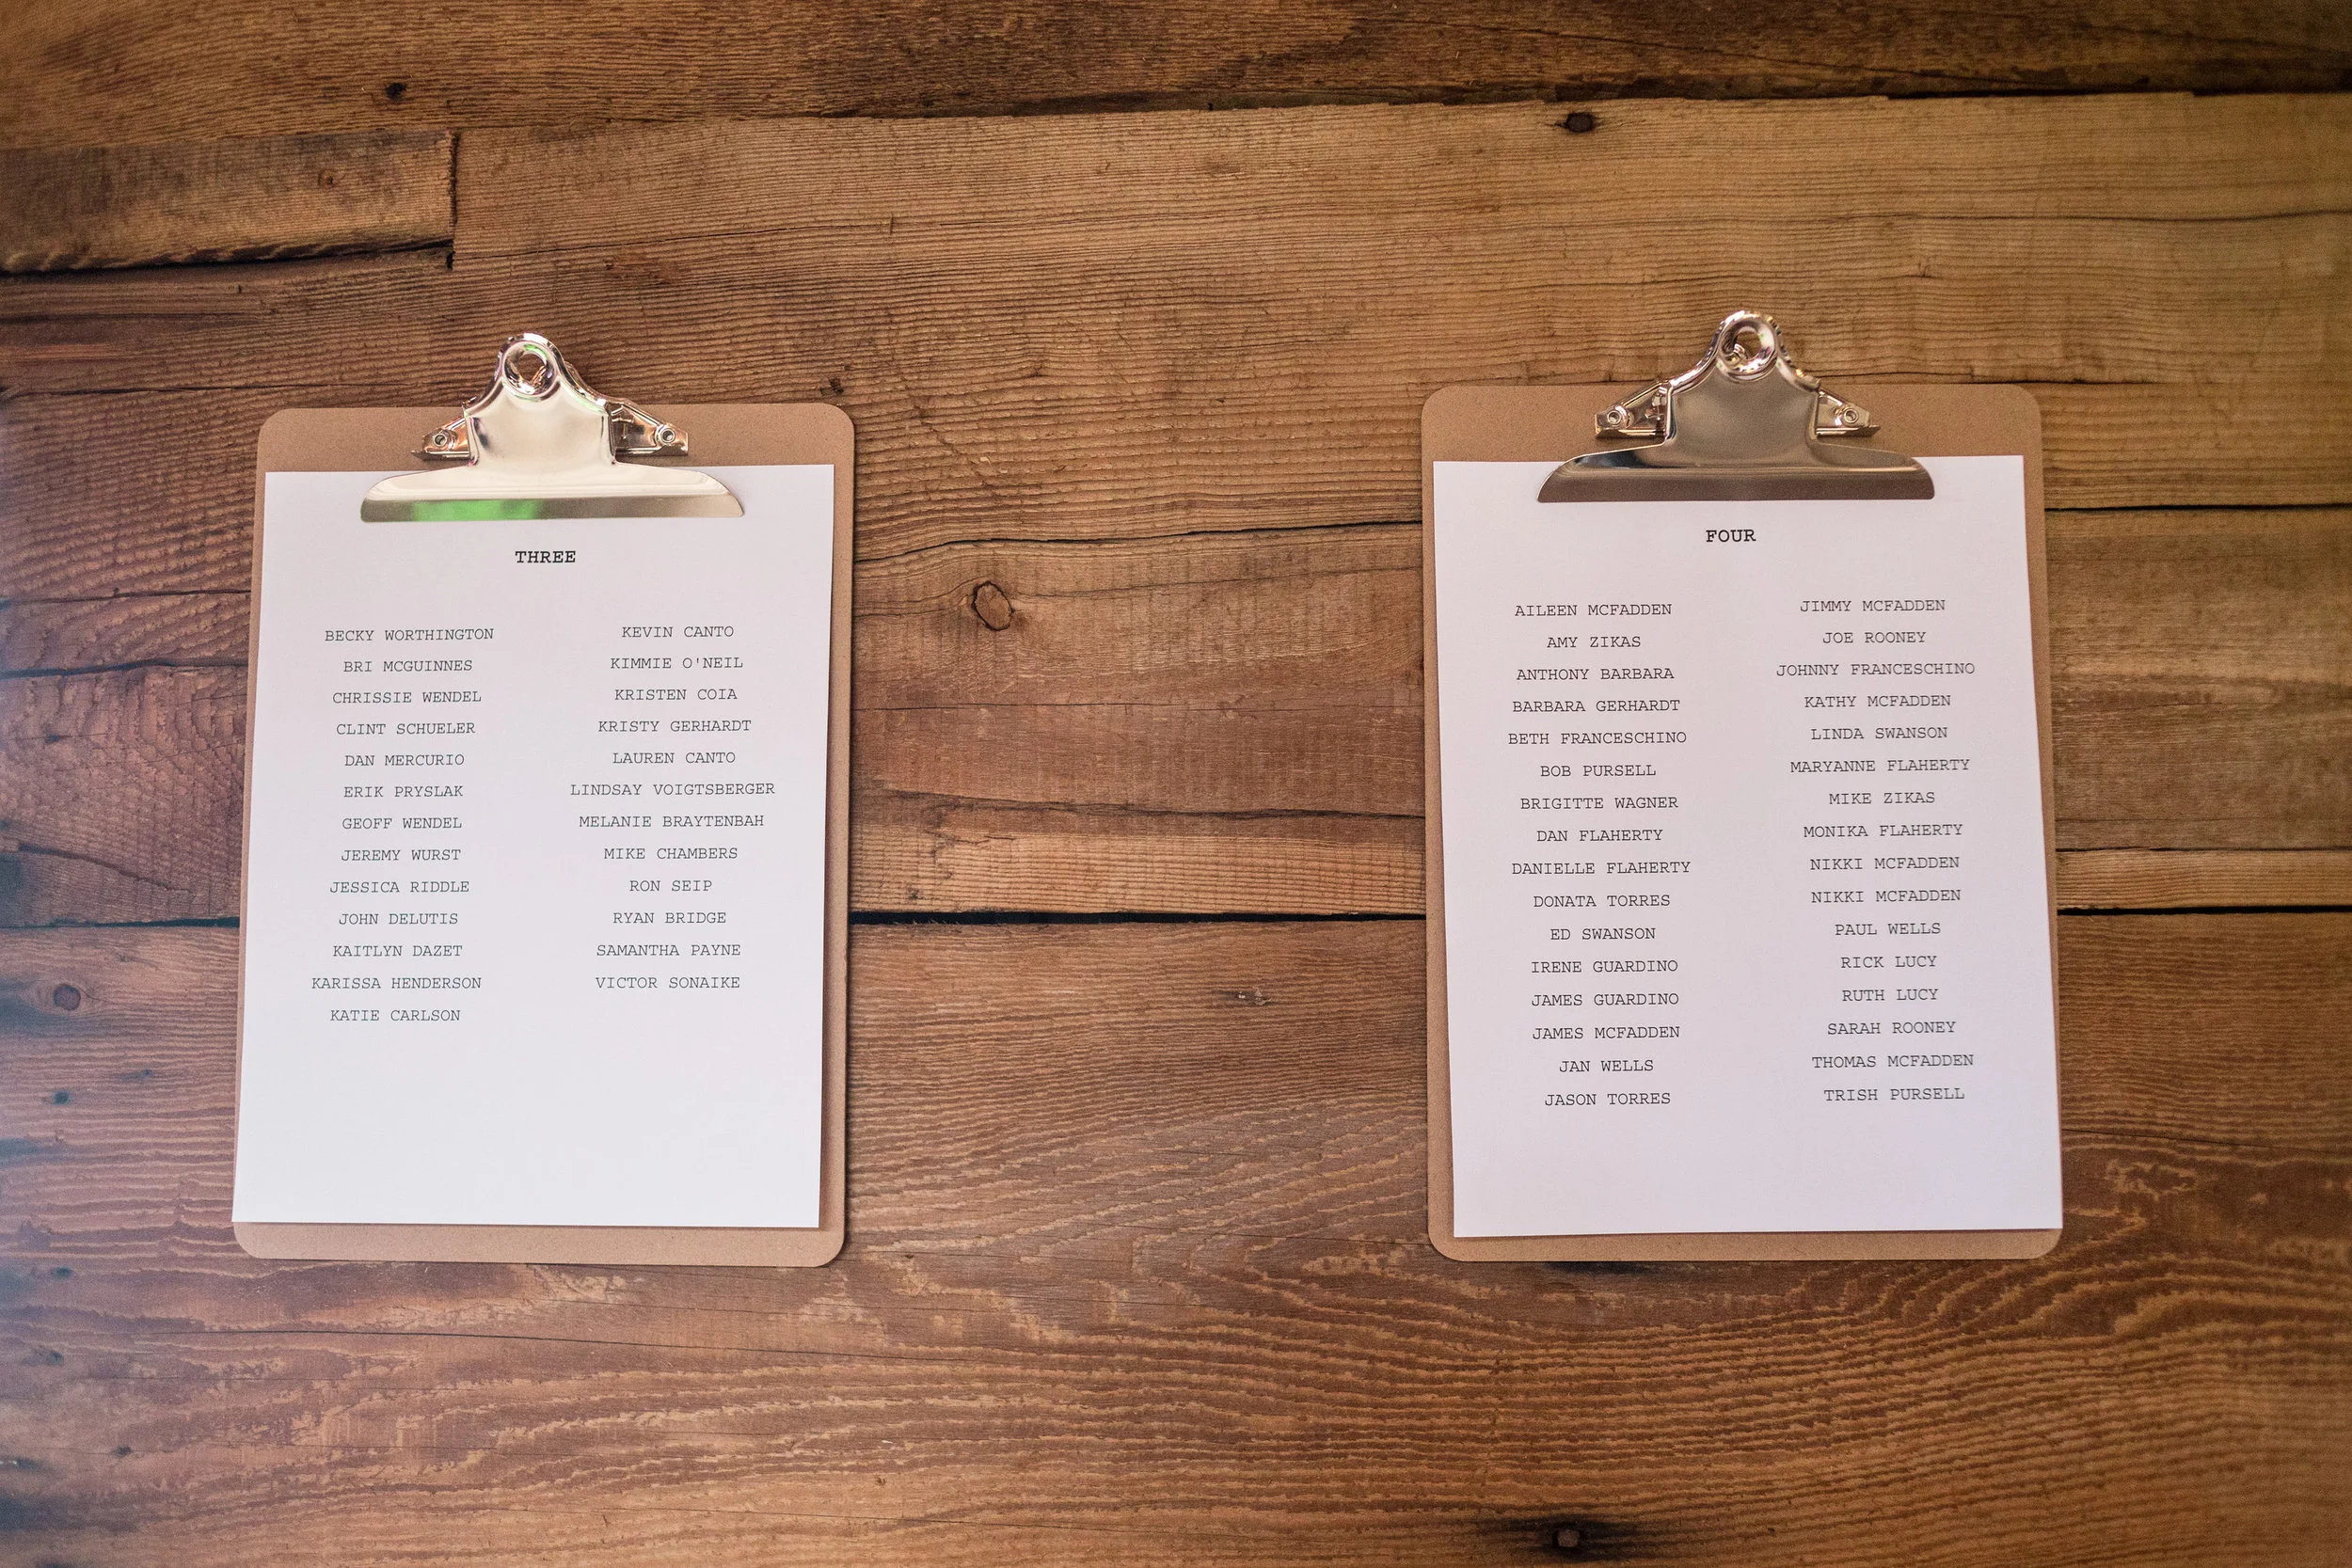 THREE
BECKY WORTHINGTON
BRI MCGUINNES
CHRISSIE WENDEL
CLINT SCHUELER
DAN MERCURIO
ERIK PRYSLAK
GEOFF WENDEL
JEREMY WURST
JESSICA RIDDLE
JOHN DELUTIS
KAITLYN DAZET
KARISSA HENDERSON
KATIE CARLSON
KEVIN CANTO
KIMMIE O'NEIL
KRISTEN COIA
KRISTY GERHARDT
LAUREN CANTO
LINDSAY VOIGTSBERGER
MELANIE BRAYTENBAH
MIKE CHAMBERS
RON SEIP
RYAN BRIDGE
SAMANTHA PAYNE
VICTOR SONAIKE
FOUR
AILEEN MCFADDEN
AMY ZIKAS
ANTHONY BARBARA
BARBARA GERHARDT
BETH FRANCESCHINO
BOB PURSELL
BRIGITTE WAGNER
DAN FLAHERTY
DANIELLE FLAHERTY
DONATA TORRES
ED SWANSON
IRENE GUARDINO
JAMES GUARDINO
JAMES MCFADDEN
JAN WELLS
JASON TORRES
JIMMY MCFADDEN
JOE ROONEY
JOHNNY FRANCESCHINO
KATHY MCFADDEN
LINDA SWANSON
MARYANNE FLAHERTY
MIKE ZIKAS
MONIKA FLAHERTY
NIKKI MCFADDEN
NIKKI MCFADDEN
PAUL WELLS
RICK LUCY
RUTH LUCY
SARAH ROONEY
THOMAS MCFADDEN
TRISH PURSELL